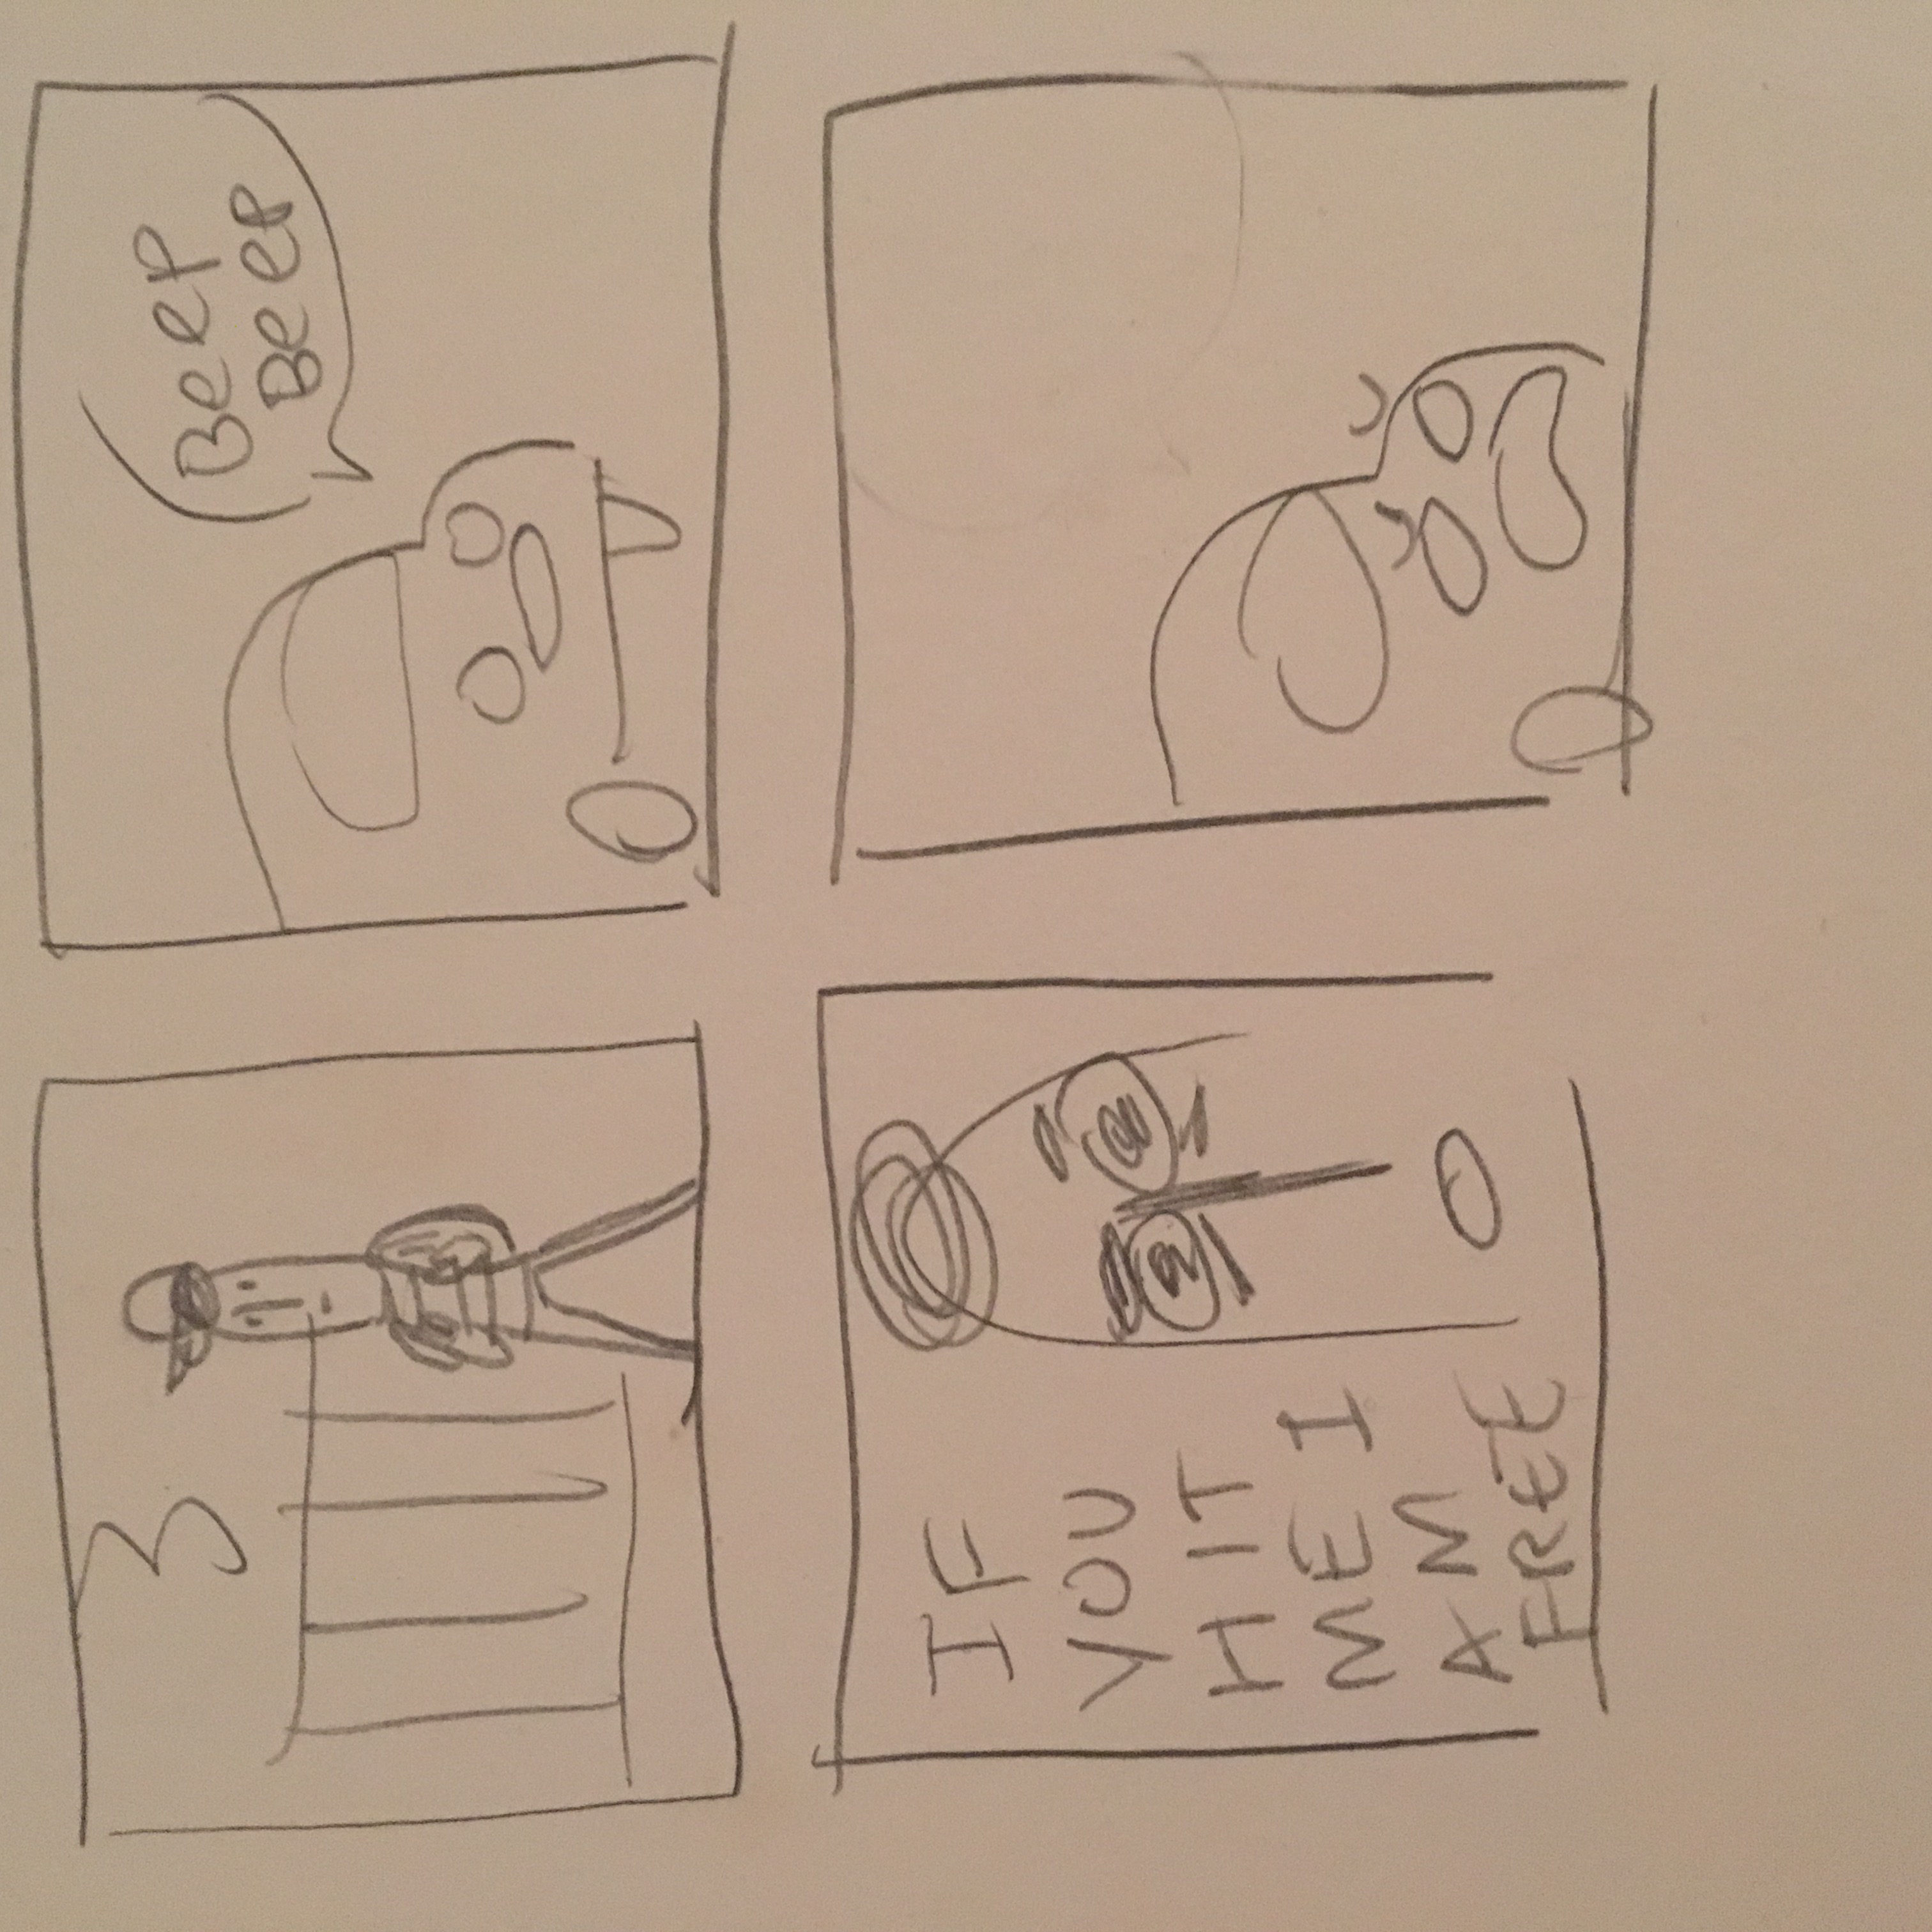 3
Beep
Beep
IF
YOU
HIT
ME I
AM
FREE